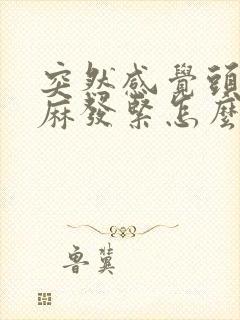 突然感覺頭
麻發緊怎麼
魯冀